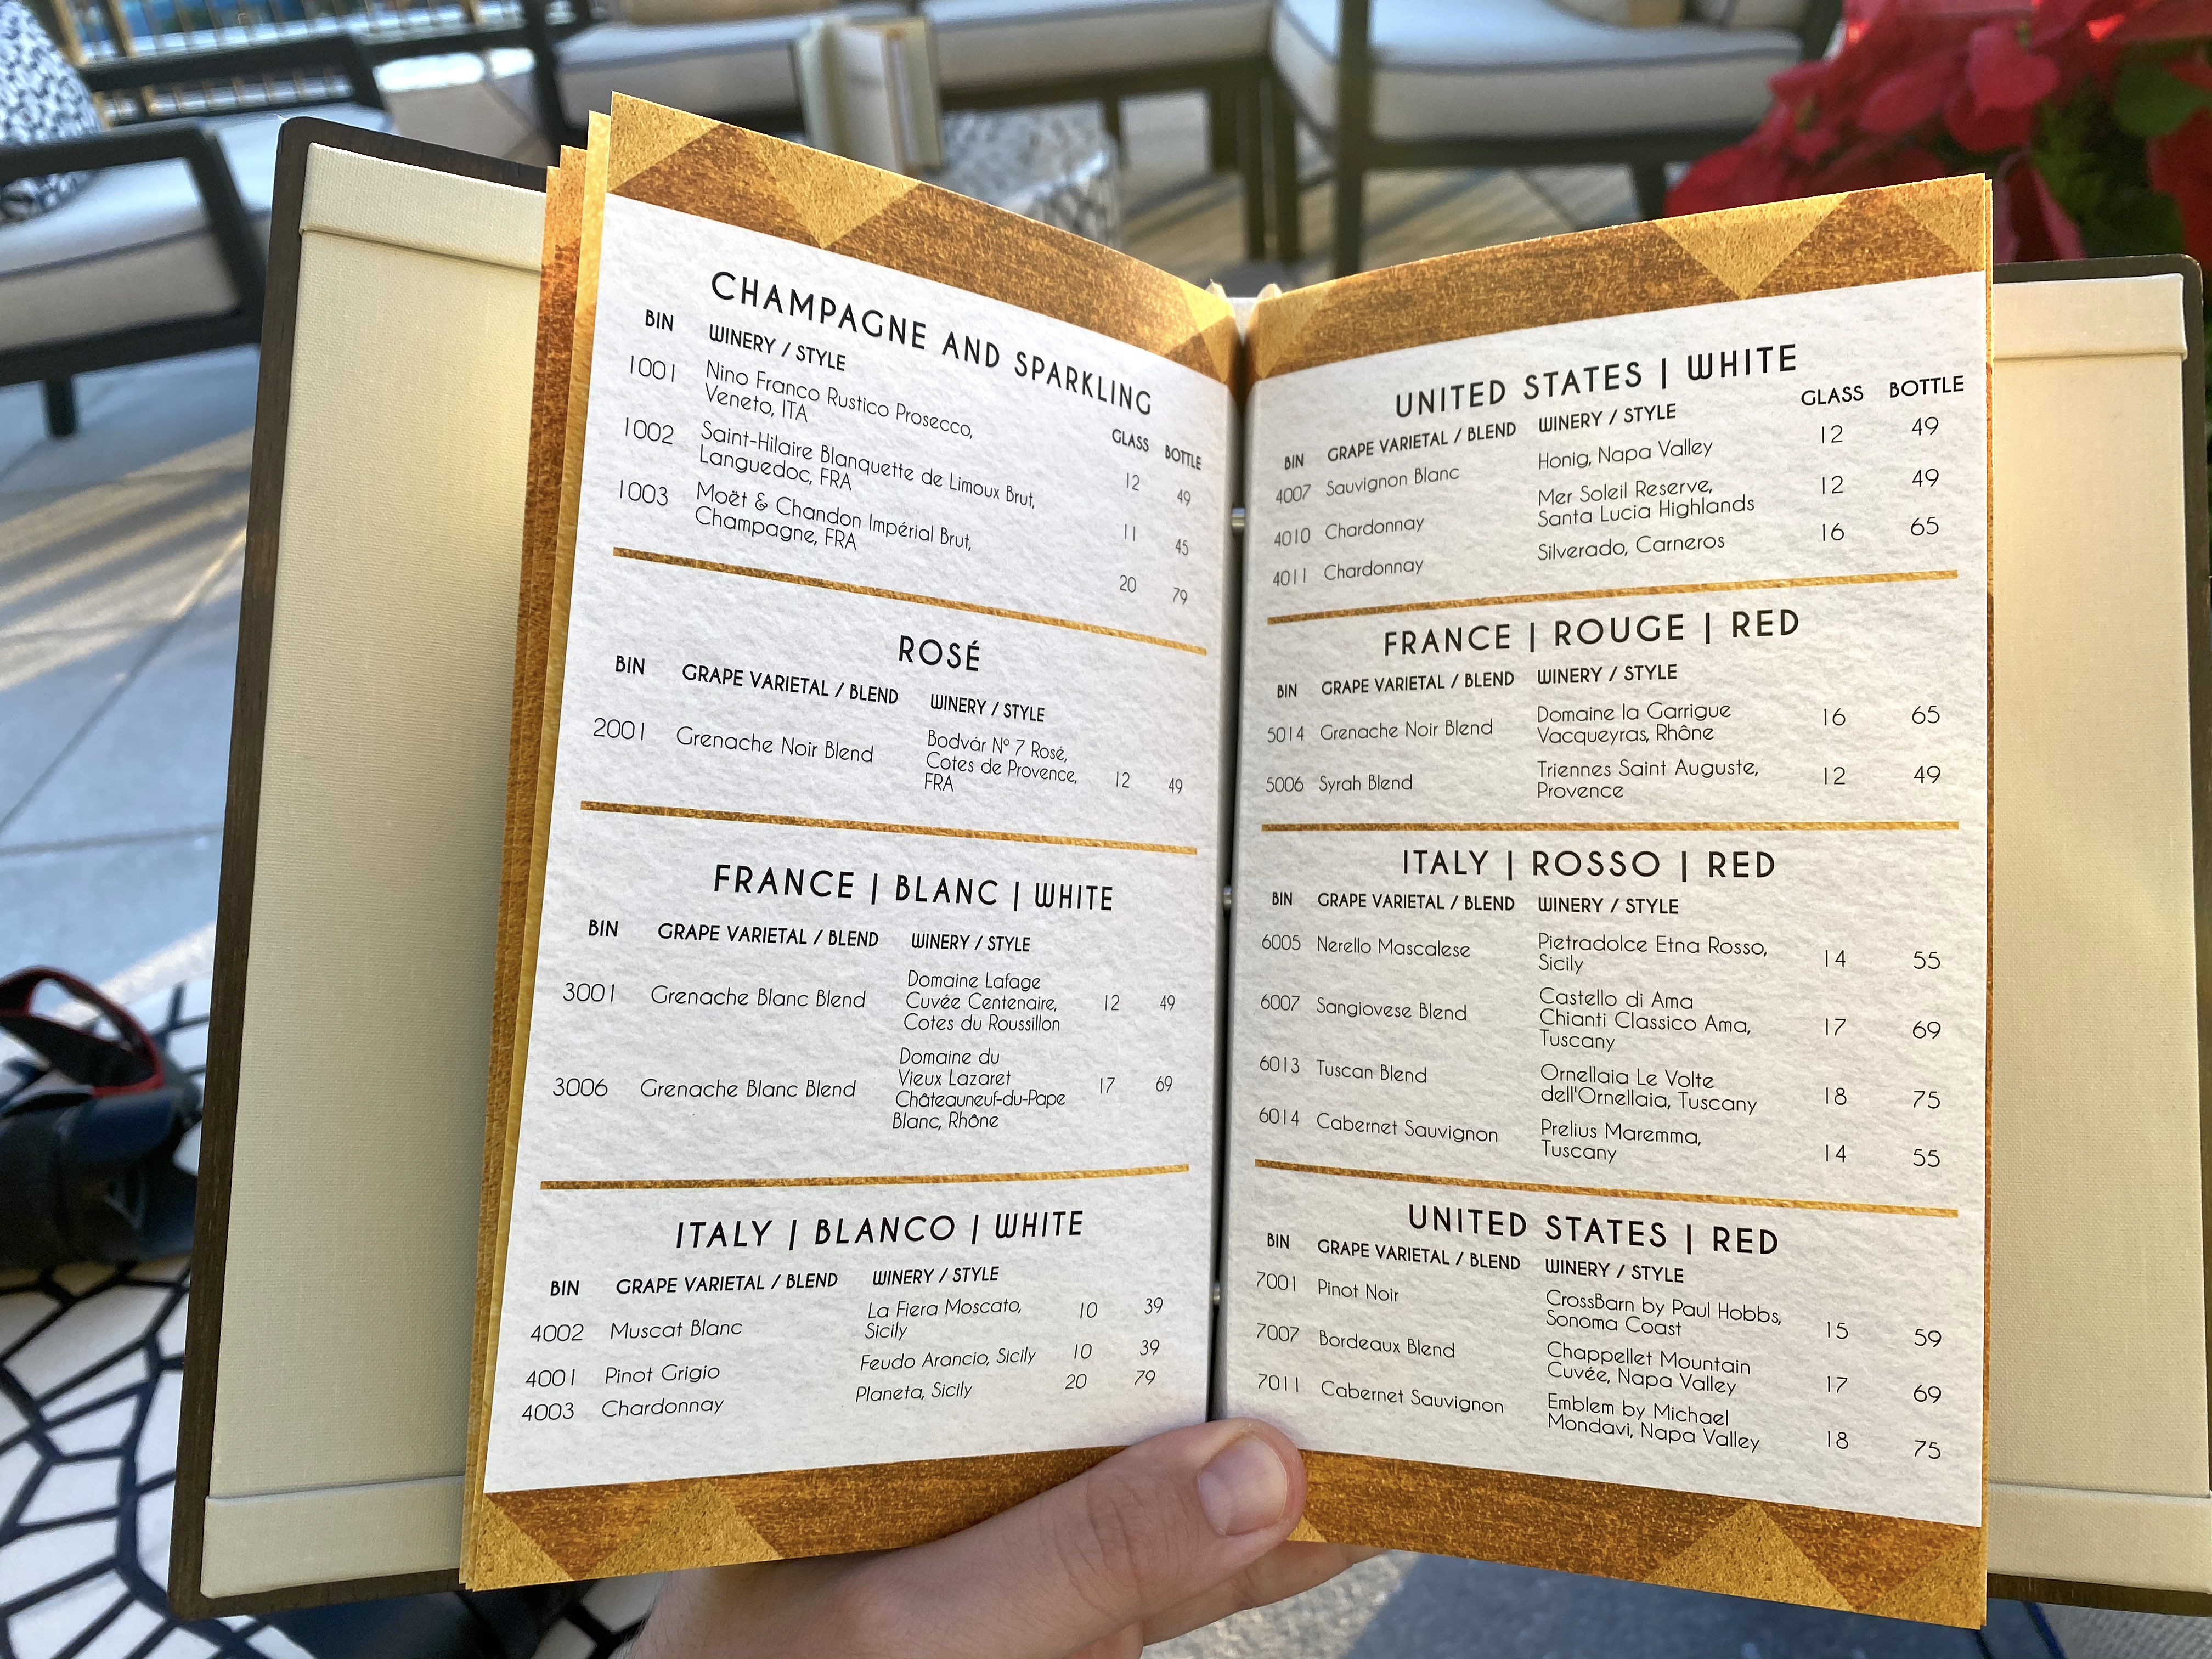 CHAMPAGNE AND SPARKLING
BIN WINERY / STYLE GLASS BOTTLE
1001 Nino Franco Rustico Prosecco,
Veneto, ITA 12 49
1002 Saint-Hilaire Blanquette de Limoux Brut,
Languedoc, FRA 11 45
1003 Moët & Chandon Impérial Brut,
Champagne, FRA 20 79
ROSÉ
BIN GRAPE VARIETAL / BLEND WINERY / STYLE
2001 Grenache Noir Blend Bodvár Nº 7 Rosé,
Cotes de Provence, 12 49
FRA
FRANCE | BLANC | WHITE
BIN GRAPE VARIETAL / BLEND WINERY / STYLE
Domaine Lafage
3001 Grenache Blanc Blend Cuvée Centenaire, 12 49
Cotes du Roussillon
Domaine du
Vieux Lazaret
3006 Grenache Blanc Blend Châteauneuf-du-Pape 17 69
Blanc, Rhône
ITALY | BLANCO | WHITE
BIN GRAPE VARIETAL / BLEND WINERY / STYLE
4002 Muscat Blanc La Fiera Moscato, 10 39
Sicily
4001 Pinot Grigio Feudo Arancio, Sicily 10 39
4003 Chardonnay Planeta, Sicily 20 79
UNITED STATES | WHITE
BIN GRAPE VARIETAL / BLEND WINERY / STYLE GLASS BOTTLE
4007 Sauvignon Blanc Honig, Napa Valley 12 49
4010 Chardonnay Mer Soleil Reserve, 12 49
Santa Lucia Highlands
4011 Chardonnay Silverado, Carneros 16 65
FRANCE | ROUGE | RED
BIN GRAPE VARIETAL / BLEND WINERY / STYLE
5014 Grenache Noir Blend Domaine la Garrigue 16 65
Vacqueyras, Rhône
5006 Syrah Blend Triennes Saint Auguste, 12 49
Provence
ITALY | ROSSO | RED
BIN GRAPE VARIETAL / BLEND WINERY / STYLE
6005 Nerello Mascalese Pietradolce Etna Rosso, 14 55
Sicily
6007 Sangiovese Blend Castello di Ama
Chianti Classico Ama, 17 69
Tuscany
6013 Tuscan Blend Ornellaia Le Volte
dell'Ornellaia, Tuscany 18 75
6014 Cabernet Sauvignon Prelius Maremma,
Tuscany 14 55
UNITED STATES | RED
BIN GRAPE VARIETAL / BLEND WINERY / STYLE
7001 Pinot Noir CrossBarn by Paul Hobbs,
Sonoma Coast 15 59
7007 Bordeaux Blend Chappellet Mountain
Cuvée, Napa Valley 17 69
7011 Cabernet Sauvignon Emblem by Michael
Mondavi, Napa Valley 18 75